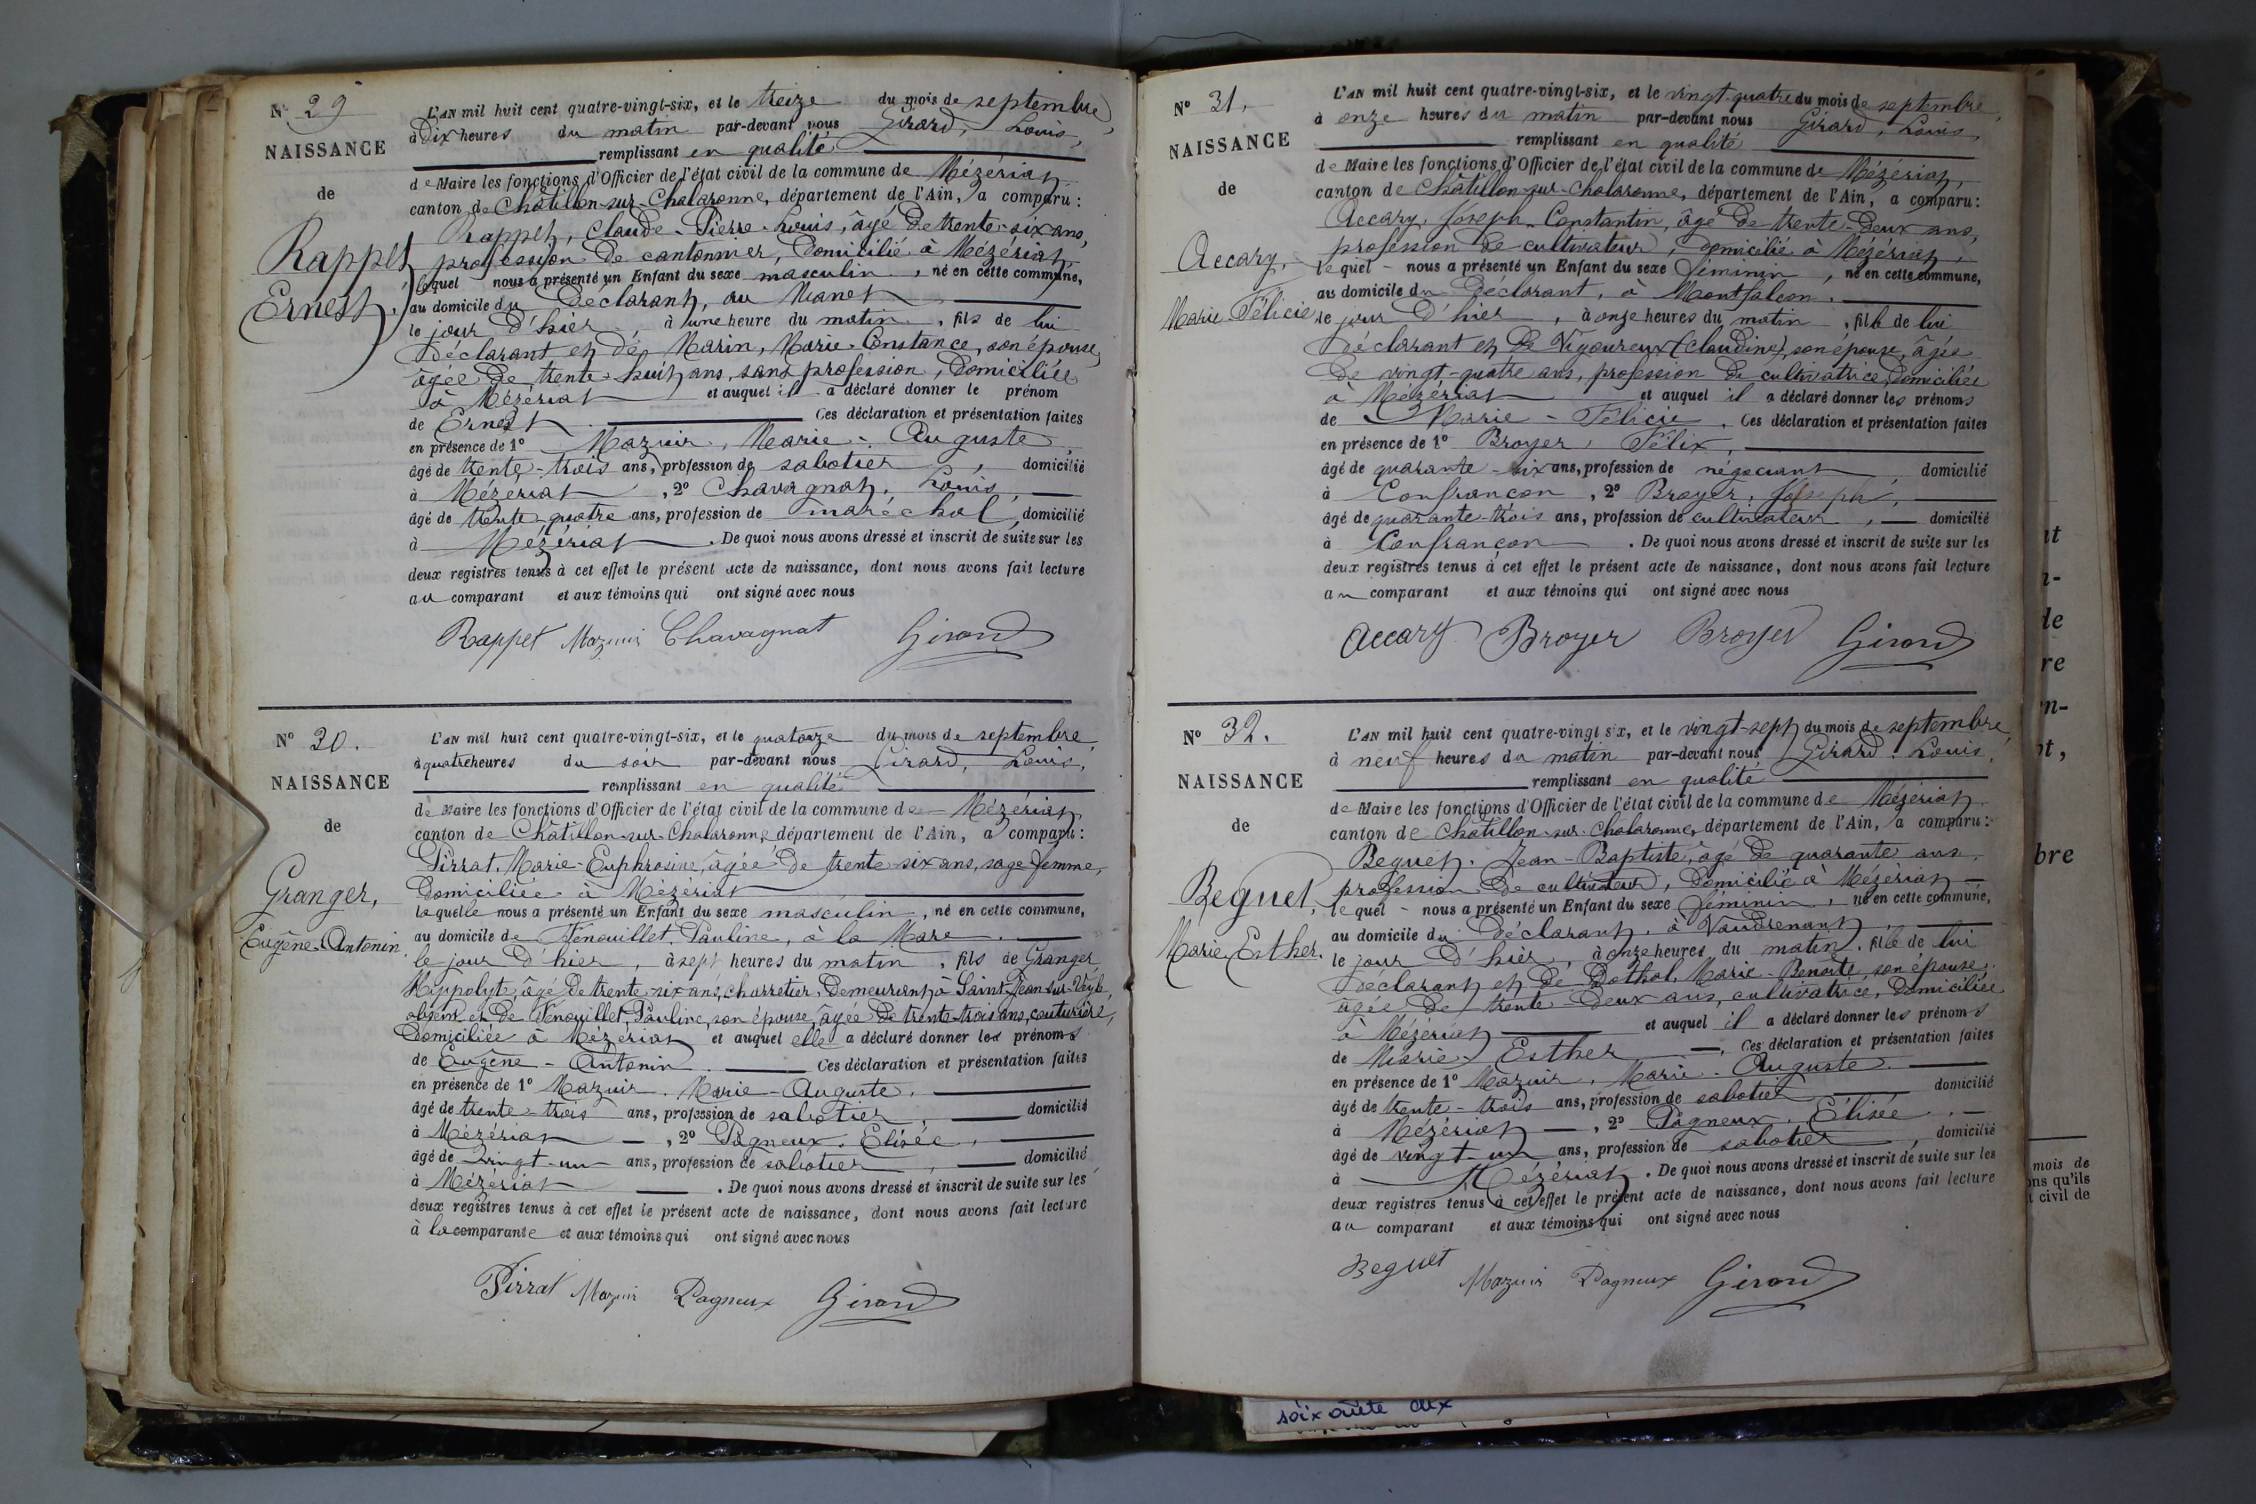 N° 29
NAISSANCE
de
Rappet
Ernest.
L'AN mil huit cent quatre-vingt-six, et le treize du mois de septembre,
à dix heures du matin par-devant nous Girard, Louis,
remplissant en qualité
de Maire les fonctions d'Officier de l'état civil de la commune de Mézériat,
canton de Châtillon-sur-Chalaronne, département de l'Ain, a comparu :
Rappet, Claude-Pierre-Louis, âgé de trente-six ans,
profession de cantonnier, domicilié à Mézériat,
lequel nous a présenté un Enfant du sexe masculin, né en cette commune,
au domicile du déclarant, au Manet
le jour d'hier, à une heure du matin, fils de lui
déclarant et de Marin, Marie-Constance, son épouse,
âgée de trente-huit ans, sans profession, domiciliée
à Mézériat et auquel il a déclaré donner le prénom
de Ernest. Ces déclaration et présentation faites
en présence de 1° Mazuir, Marie-Auguste,
âgé de trente-trois ans, profession de sabotier, domicilié
à Mézériat, 2° Chavagnat, Louis,
âgé de trente-quatre ans, profession de maréchal, domicilié
à Mézériat. De quoi nous avons dressé et inscrit de suite sur les
deux registres tenus à cet effet le présent acte de naissance, dont nous avons fait lecture
au comparant et aux témoins qui ont signé avec nous
Rappet Mazuir Chavagnat Girard
N° 30.
NAISSANCE
de
Granger,
Eugène-Antonin
L'AN mil huit cent quatre-vingt-six, et le quatorze du mois de septembre
à quatre heures du soir par-devant nous Girard, Louis,
remplissant en qualité
de Maire les fonctions d'Officier de l'état civil de la commune de Mézériat
canton de Châtillon-sur-Chalaronne, département de l'Ain, a comparu :
Pirrat, Marie-Euphrosine, âgée de trente-six ans, sage femme,
domiciliée à Mézériat
laquelle nous a présenté un Enfant du sexe masculin, né en cette commune,
au domicile de Fenouillet, Pauline, à la Mare.
le jour d'hier, à sept heures du matin, fils de Granger
Hippolyte, âgé de trente-six ans, charretier, demeurant à Saint-Jean-sur-Veyle,
absent et de Fenouillet, Pauline, son épouse, âgée de trente-trois ans, couturière,
domiciliée à Mézériat et auquel elle a déclaré donner les prénoms
de Eugène-Antonin. Ces déclaration et présentation faites
en présence de 1° Mazuir, Marie-Auguste,
âgé de trente-trois ans, profession de sabotier, domicilié
à Mézériat, 2° Pagneux, Elisée,
âgé de vingt-un ans, profession de sabotier, domicilié
à Mézériat. De quoi nous avons dressé et inscrit de suite sur les
deux registres tenus à cet effet le présent acte de naissance, dont nous avons fait lecture
à la comparante et aux témoins qui ont signé avec nous
Pirrat Mazuir Pagneux Girard
N° 31.
NAISSANCE
de
Accary,
Marie Félicie
L'AN mil huit cent quatre-vingt-six, et le vingt-quatre du mois de septembre,
à onze heures du matin par-devant nous Girard, Louis,
remplissant en qualité
de Maire les fonctions d'Officier de l'état civil de la commune de Mézériat,
canton de Châtillon-sur-Chalaronne, département de l'Ain, a comparu :
Accary, Joseph-Constantin, âgé de trente-deux ans,
profession de cultivateur, domicilié à Mézériat,
lequel nous a présenté un Enfant du sexe féminin, né en cette commune,
au domicile du déclarant, à Montfalcon.
le jour d'hier, à onze heures du matin, fille de lui
déclarant et de Vigoureux (Claudine), son épouse, âgée
de vingt-quatre ans, profession de cultivatrice, domiciliée
à Mézériat et auquel il a déclaré donner les prénoms
de Marie-Félicie. Ces déclaration et présentation faites
en présence de 1° Broyer, Félix,
âgé de quarante-six ans, profession de négociant, domicilié
à Confrançon, 2° Broyer, Joseph,
âgé de quarante-trois ans, profession de cultivateur, domicilié
à Confrançon. De quoi nous avons dressé et inscrit de suite sur les
deux registres tenus à cet effet le présent acte de naissance, dont nous avons fait lecture
au comparant et aux témoins qui ont signé avec nous
Accary Broyer Broyer Girard
N° 32.
NAISSANCE
de
Beguet,
Marie Esther.
L'AN mil huit cent quatre-vingt six, et le vingt-sept du mois de septembre,
à neuf heures du matin par-devant nous Girard, Louis,
remplissant en qualité
de Maire les fonctions d'Officier de l'état civil de la commune de Mézériat,
canton de Châtillon-sur-Chalaronne, département de l'Ain, a comparu :
Beguet, Jean-Baptiste, âgé de quarante ans,
profession de cultivateur, domicilié à Mézériat
lequel nous a présenté un Enfant du sexe féminin, né en cette commune,
au domicile du déclarant, à Vaudrenant,
le jour d'hier, à onze heures du matin, fille de lui
déclarant et de Dothal, Marie-Benoite, son épouse,
âgée de trente-deux ans, cultivatrice, domiciliée
à Mézériat et auquel il a déclaré donner les prénoms
de Marie Esther. Ces déclaration et présentation faites
en présence de 1° Mazuir, Marie-Auguste.
âgé de trente-trois ans, profession de sabotier domicilié
à Mézériat, 2° Pagneux, Elisée.
âgé de vingt-un ans, profession de sabotier, domicilié
à Mézériat. De quoi nous avons dressé et inscrit de suite sur les
deux registres tenus à cet effet le présent acte de naissance, dont nous avons fait lecture
au comparant et aux témoins qui ont signé avec nous
Beguet Mazuir Pagneux Girard
nt
de
re
bre
mois de
ons qu'ils
t civil de